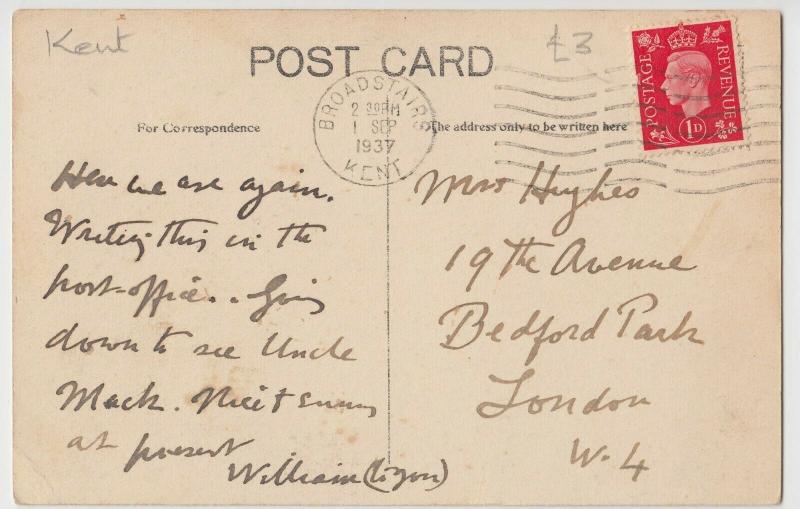 Kent
£3
POST CARD
POSTAGE REVENUE
1D
BROADSTAIRS
2 30PM
1 SEP
1937
KENT
For Correspondence
The address only to be written here
Here we are again.
Writing this in the
post-office.. Going
down to see Uncle
Mack. Nice & sunny
at present
William
Mrs Hughes
19 The Avenue
Bedford Park
London
W.4